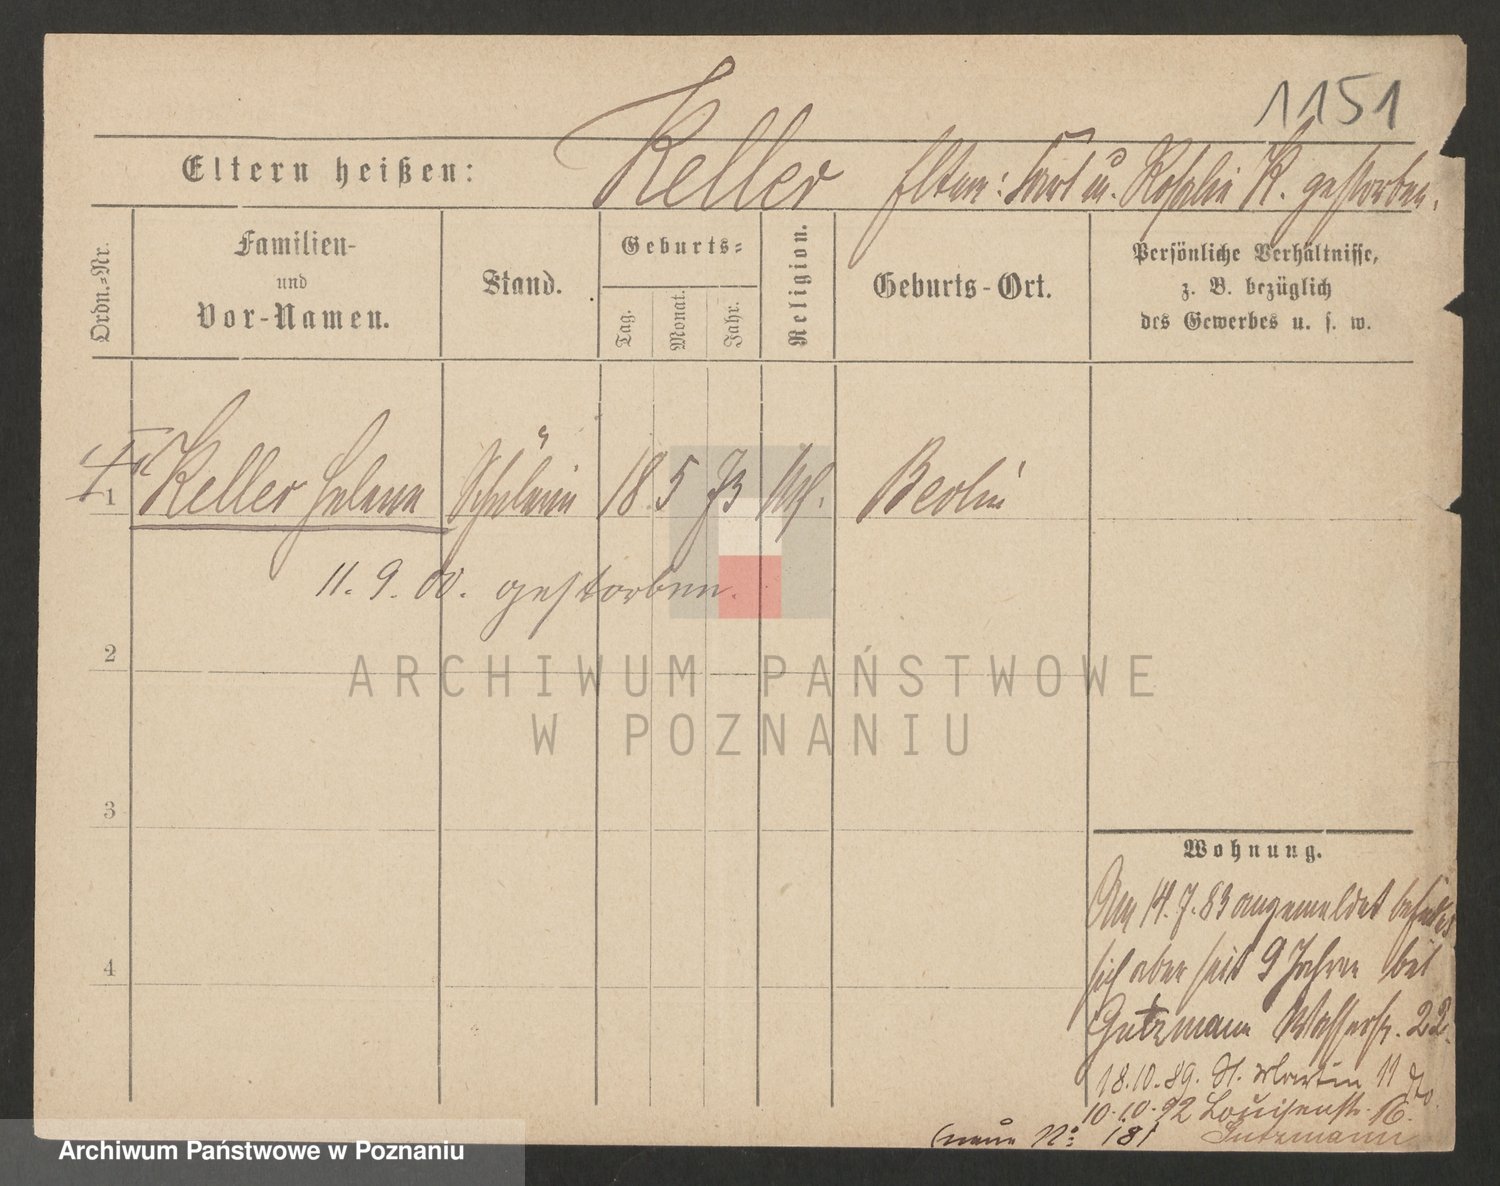 1151
Eltern heißen: Keller Eltern: Carl u. Rosalie K. gestorben.
Ordn.-Nr.
Familien-
und
Vor-Namen.
Stand.
Geburts-
Tag.
Monat.
Jahr.
Religion.
Geburts-Ort.
Persönliche Verhältnisse,
z. B. bezüglich
des Gewerbes u. s. w.
1 Keller Helene Schülerin 18. 5 73 Berlin
11. 9. 00. gestorben.
2
ARCHIWUM PAŃSTWOWE
W POZNANIU
3
4
Wohnung.
Am 14. 7. 83 angemeldet befindet
sich aber seit 9 Jahren bei
Gutzmann Wasserstr. 22.
18.10.89. St. Martin 11 do
10.10.92 Louisenstr. 16.
(neue No: 181 Gutzmann
Archiwum Państwowe w Poznaniu